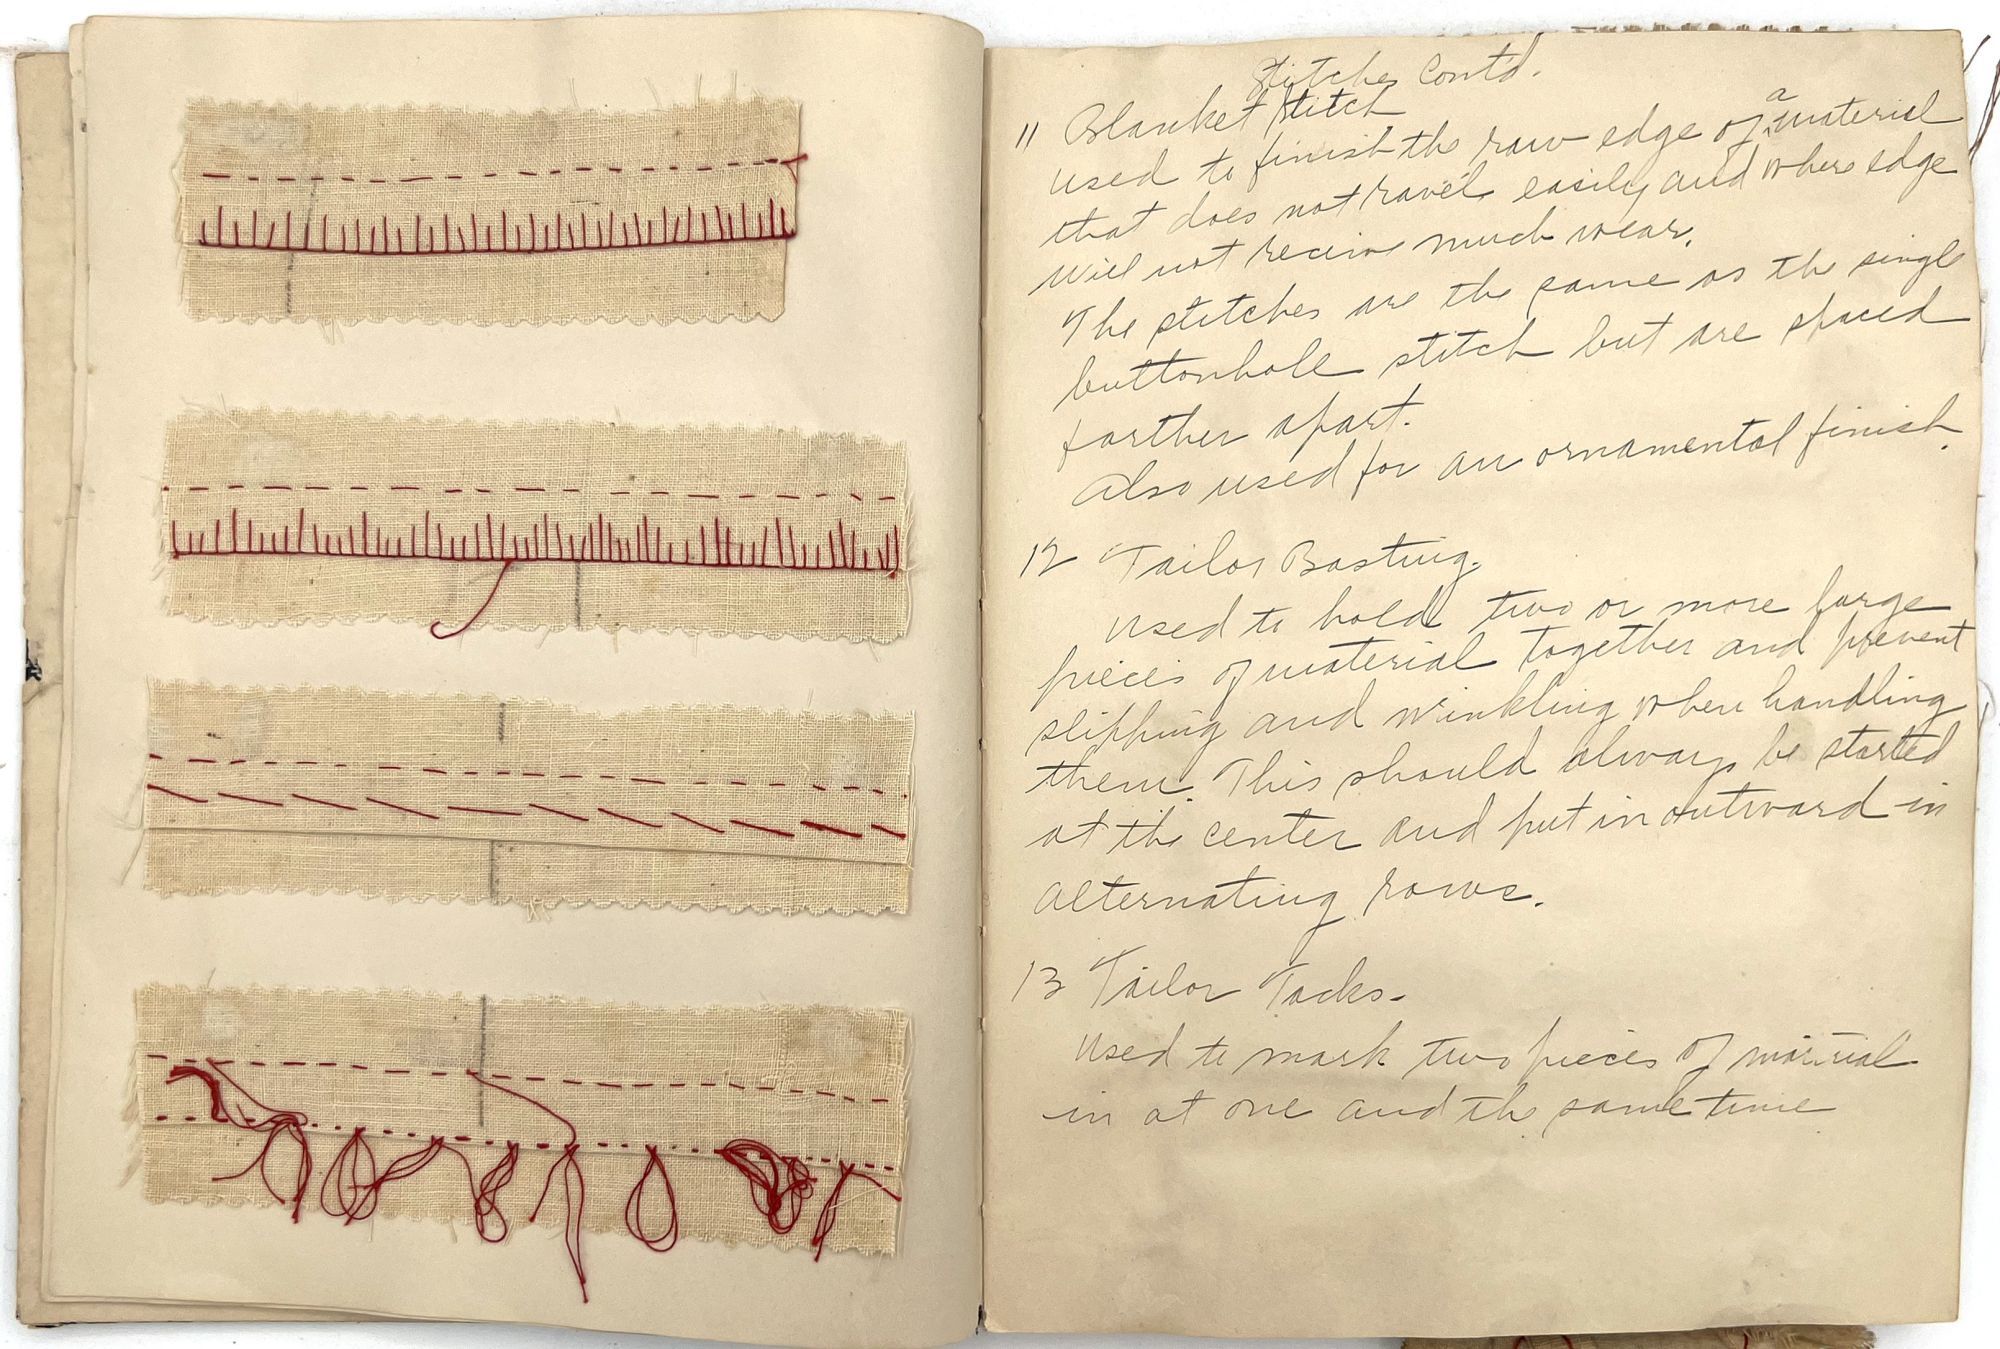 Stitches Cont'd.
11 Blanket Stitch
used to finish the raw edge of a material
that does not ravel easily and where edge
will not receive much wear.
The stitches are the same as the single
buttonhole stitch but are spaced
farther apart.
Also used for an ornamental finish.
12 Tailor Basting.
used to hold two or more large
pieces of material together and prevent
slipping and wrinkling when handling
them. This should always be started
at the center and put in outward in
alternating rows.
13 Tailor Tacks.
used to mark two pieces of material
in at one and the same time